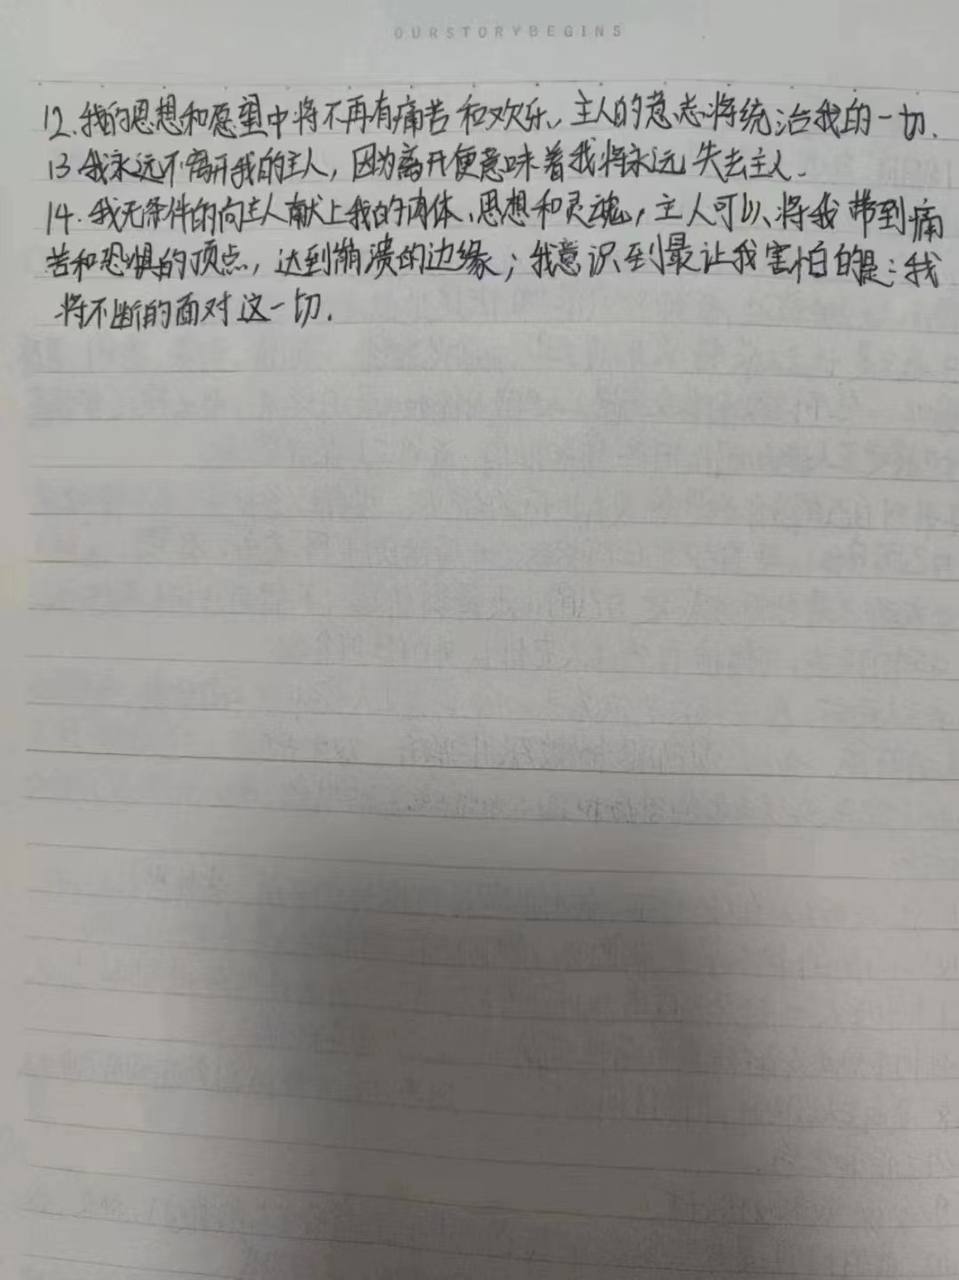 OURSTORYBEGINS
12.我的思想和愿望中将不再有痛苦和欢乐、主人的意志将统治我的一切.
13.我永远不离开我的主人，因为离开便意味着我将永远失去主人.
14.我无条件的向主人献上我的肉体、思想和灵魂，主人可以将我带到痛
苦和恐惧的顶点，达到崩溃的边缘；我意识到最让我害怕的是：我
将不断的面对这一切.